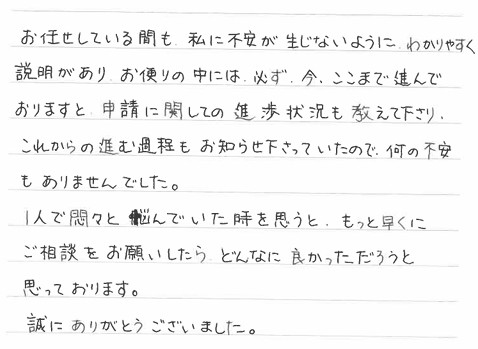 お任せしている間も、私に不安が生じないように、わかりやすく
説明があり、お便りの中には、必ず、今、ここまで進んで
おりますと、申請に関しての進歩状況も教えて下さり、
これからの進む過程もお知らせ下さっていたので、何の不安
もありませんでした。
1人で悶々と悩んでいた時を思うと、もっと早くに
ご相談をお願いしたら、どんなに良かっただろうと
思っております。
誠にありがとうございました。